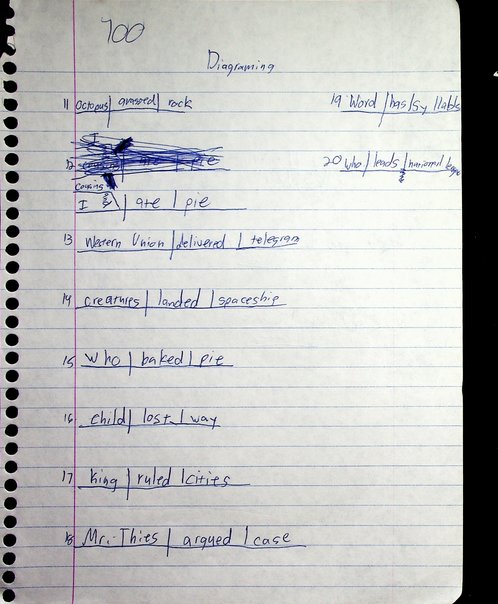 100
Diagraming
11 Octopus | grasped | rock
19 Word | has | syllable
20 Who | leads | national
Cousins
I & | ate | pie
13 Western Union | delivered | telegram
14 creatures | landed | spaceship
15 who | baked | pie
16 child | lost | way
17 king | ruled | cities
18 Mr. Thies | argued | case